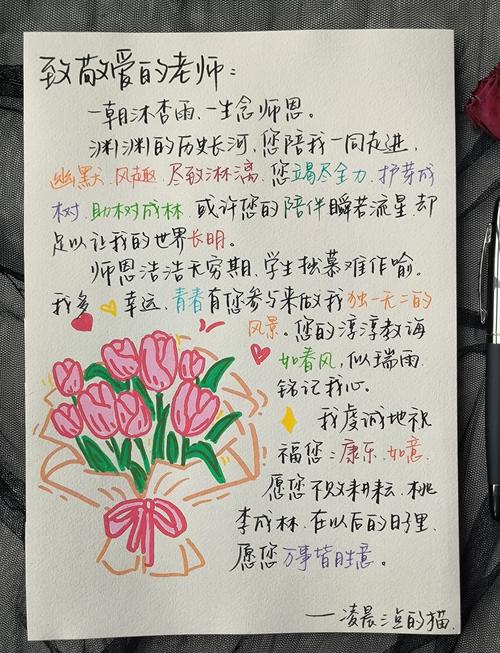 致敬爱的老师：
一朝沐杏雨，一生念师恩。
渊渊的历史长河，您陪我一同走进，
幽默、风趣、尽致淋漓，您竭尽全力，护芽成
树，助树成林，或许您的陪伴瞬若流星，却
足以让我的世界长明。
师恩浩浩无穷期，学生拙慕难作喻。
我多幸运，青春有您参与来做我独一无二的
风景。您的淳淳教诲
如春风，似瑞雨，
铭记我心。
我虔诚地祝
福您：康乐、如意，
愿您不败耕耘，桃
李成林，在以后的日子里，
愿您万事皆胜意。
——凌晨三点的猫